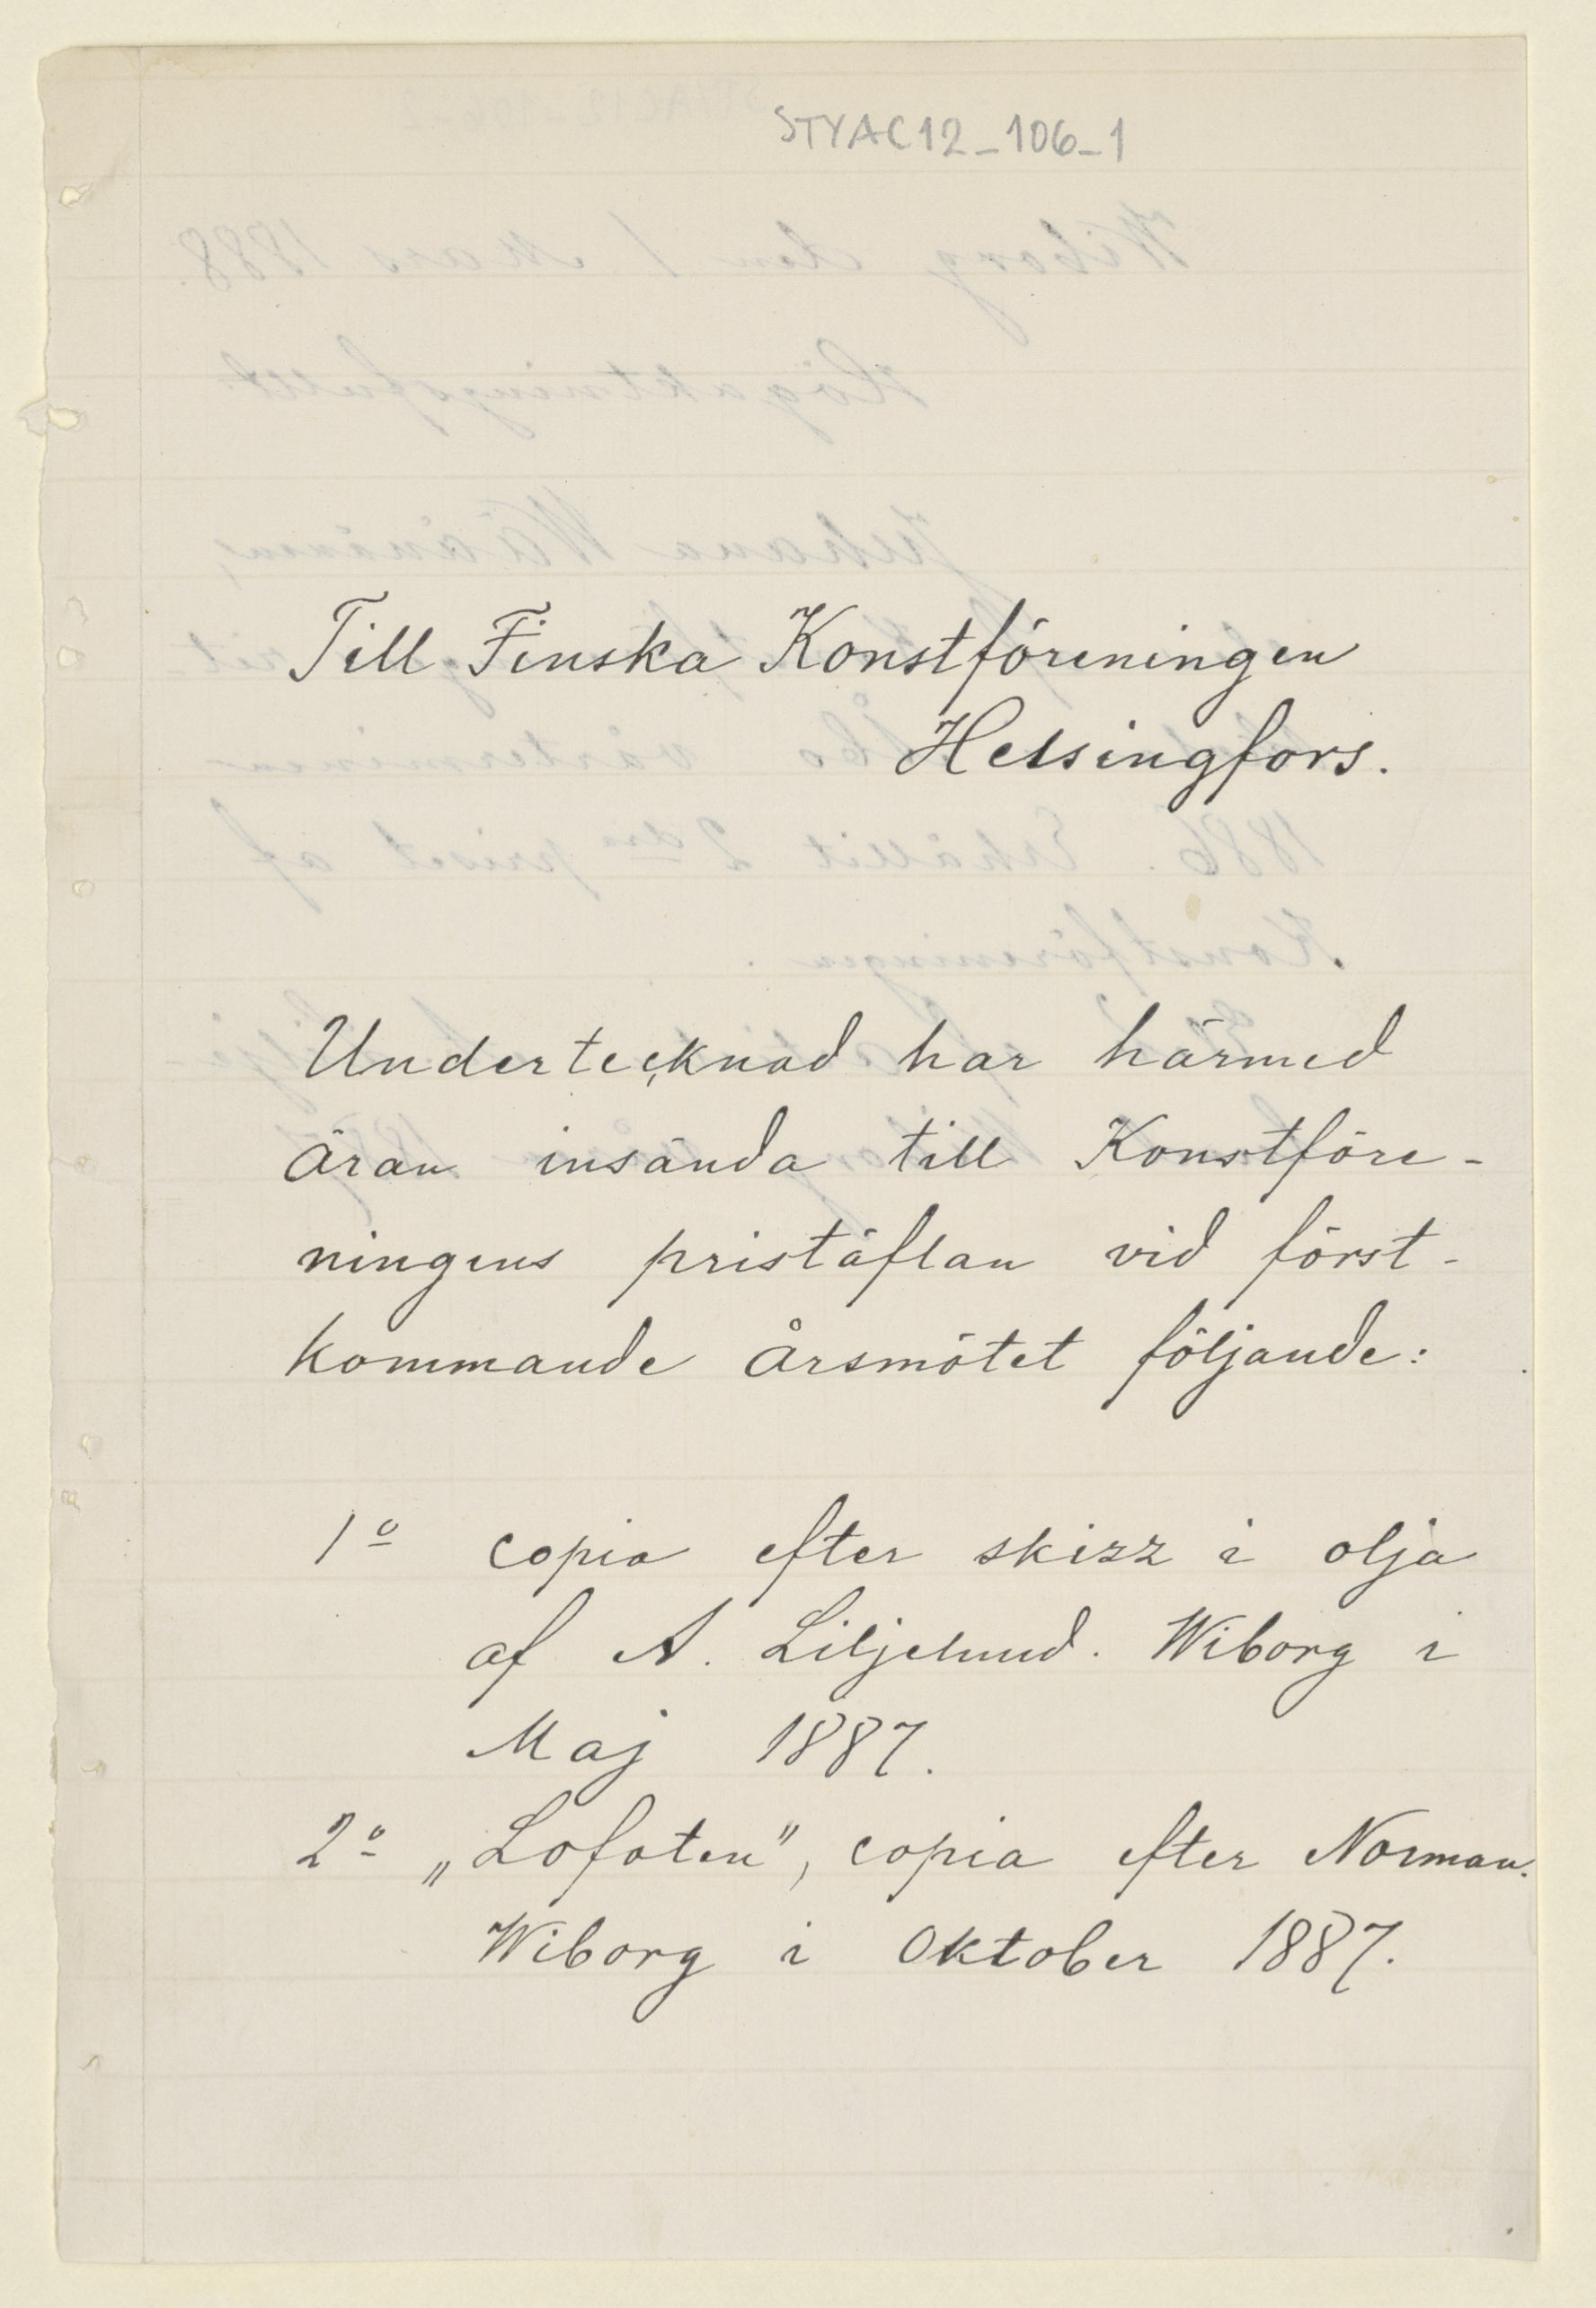 STYAC12_106_1
Till Finska Konstföreningen
Helsingfors.
Undertecknad har härmed
äran insända till Konstföre-
ningens pristäflan vid först-
kommande årsmötet följande:
1º copia efter skizz i olja
af A. Liljelund. Wiborg i
Maj 1887.
2º „Lofoten", copia efter Norman.
Wiborg i Oktober 1887.